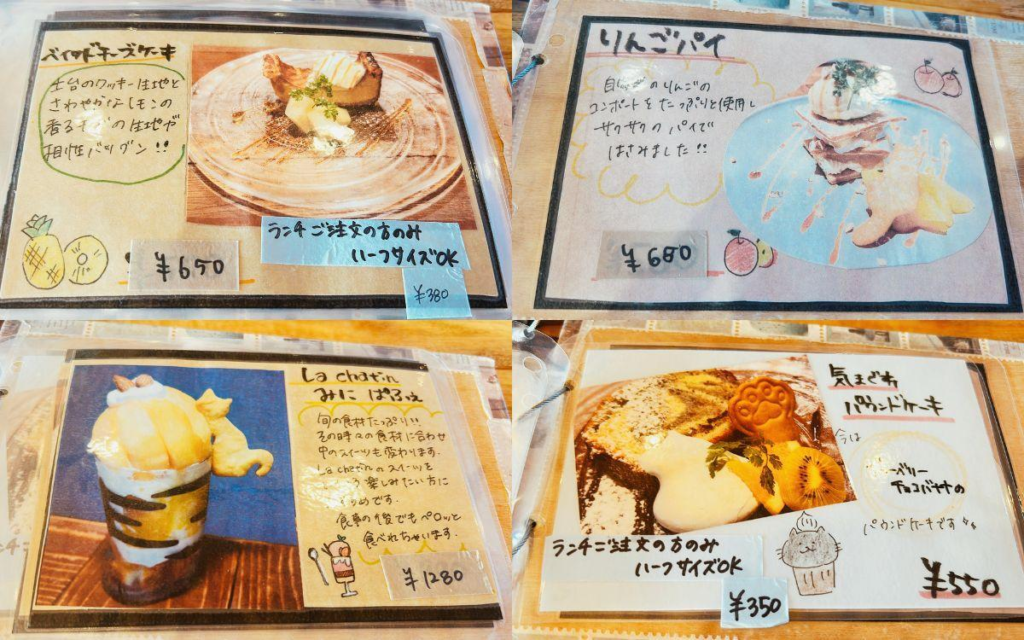 ベイクドチーズケーキ
土台のクッキー生地と
さわやかなレモンの
香るチーズの生地が
相性バツグン!!
¥650
ランチご注文の方のみ
ハーフサイズOK
¥380
りんごパイ
のりんごの
コンポートをたっぷりと使用し
サクサクのパイで
はさみました!!
¥680
La chatin
みに ぱふぇ
旬の食材たっぷり!!
その時々の食材に合わせ
中のスイーツも変わります。
La chatinのスイーツを
楽しみたい方に
すめです。
食事の後でもペロッと
食べれちゃいます。
¥1280
気まぐれ
パウンドケーキ
今は
ベリー
チョコバナナの
パウンドケーキです
ランチご注文の方のみ
ハーフサイズOK
¥350
¥550